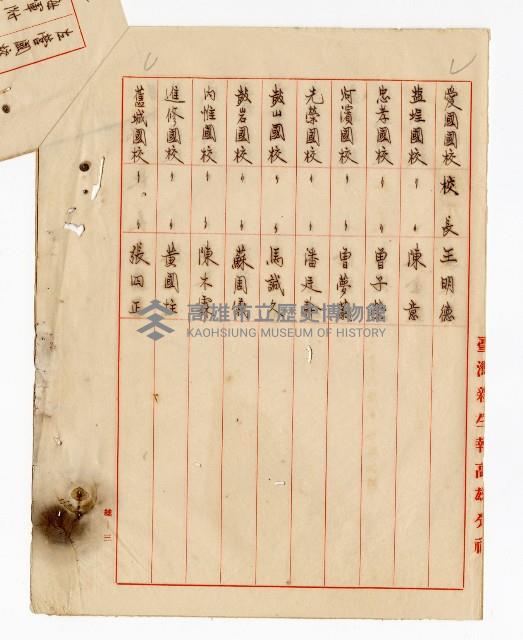 愛國國校校長王明德
鹽埕國校〃〃陳 意
忠孝國校〃〃曾子
河濱國校〃〃曾夢
光榮國校〃〃潘廷
鼓山國校〃〃馬誠
鼓岩國校〃〃蘇周
內惟國校〃〃陳木霖
進修國校〃〃黃國柱
舊城國校〃〃張因正
臺灣新生報高雄分社
雄—三
左營國校
高雄市立歷史博物館
KAOHSIUNG MUSEUM OF HISTORY